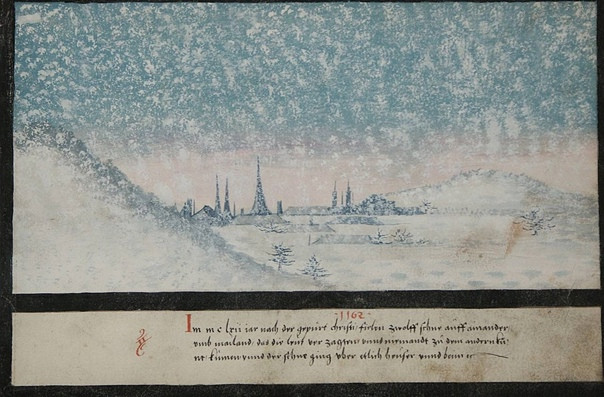 1162
Im m c lxii iar nach der gepürt christi fielen zwelff schne auff ainander
vmb mailand das die leut ver zagten vnnd niemandt zu dem andern kü
ne kumen vnnd der schne ging vber etlich heuser vnnd bäum